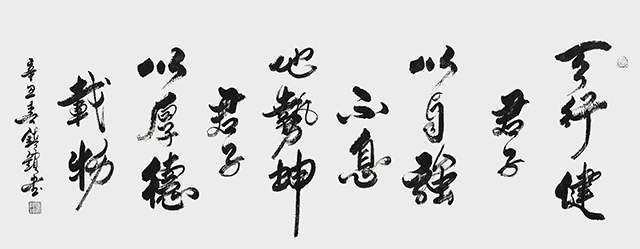 天行健
君子
以自强
不息
地势坤
君子
以厚德
載物
辛丑春